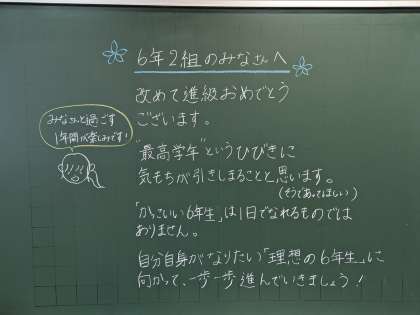 6年2組のみなさんへ
改めて進級おめでとう
ございます。
みなさんと過ごす
1年間が楽しみです!
"最高学年"というひびきに
気もちが引きしまることと思います。
(そうであってほしい)
「かっこいい6年生」は1日でなれるものでは
ありません。
自分自身がなりたい「理想の6年生」に
向かって、一歩一歩進んでいきましょう!